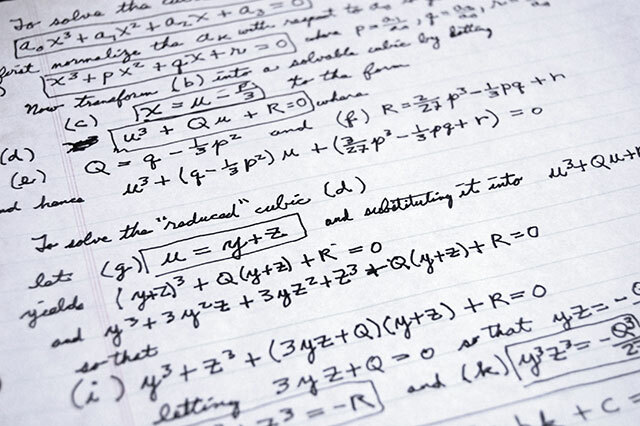 To solve the cubic
a₀x³ + a₁x² + a₂x + a₃ = 0
first normalize the aₖ with respect to a₀
x³ + px² + qx + r = 0 where p = a₁/a₀, q = a₂/a₀, r =
Now transform (b) into a solvable cubic by letting
(c) x = u - p/3 to the form
(d) u³ + Qu + R = 0 where
(e) Q = q - 1/3 p² and (f) R = 2/27 p³ - 1/3 pq + r
and hence u³ + (q - 1/3 p²) u + (2/27 p³ - 1/3 pq + r) = 0
To solve the "reduced" cubic (d)
let (g) u = y + z and substituting it into u³ + Qu +
yields (y+z)³ + Q(y+z) + R = 0
and y³ + 3y²z + 3yz² + z³ + Q(y+z) + R = 0
so that
(i) y³ + z³ + (3yz + Q)(y+z) + R = 0
letting 3yz + Q = 0 so that yz = -
z³ = -R and (k) y³z³ = -Q³/
+ c =